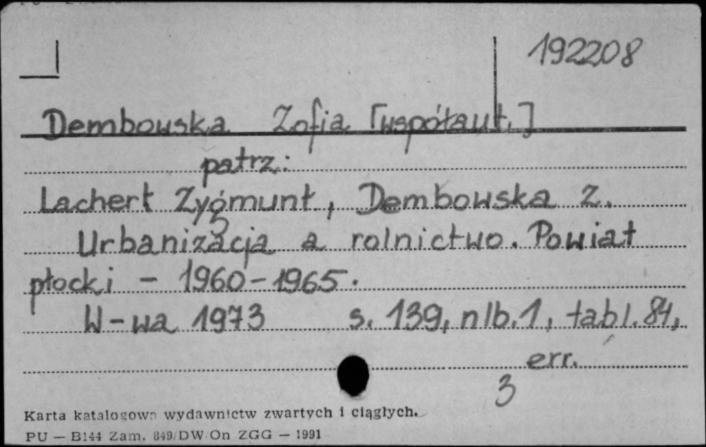 192208
Dembowska Zofia [współaut.]
patrz:
Lachert Zygmunt, Dembowska Z.
Urbanizacja a rolnictwo. Powiat
płocki - 1960-1965.
W-wa 1973 s. 139, nlb. 1, tabl. 84,
err.
3
Karta katalogowa wydawnictw zwartych i ciągłych.
PU — B144 Zam. 849/DW/On ZGG — 1991